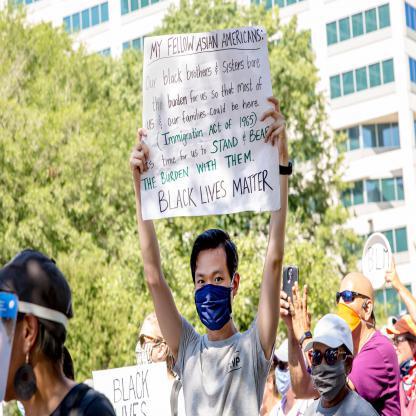 MY FELLOW ASIAN AMERICANS:
Our black brothers & sisters bore
the burden for us so that most of
us & our families could be here.
(Immigration Act of 1965)
Is time for us to STAND & BEAR
THE BURDEN WITH THEM.
BLACK LIVES MATTER
BLM
BLACK
LIVES